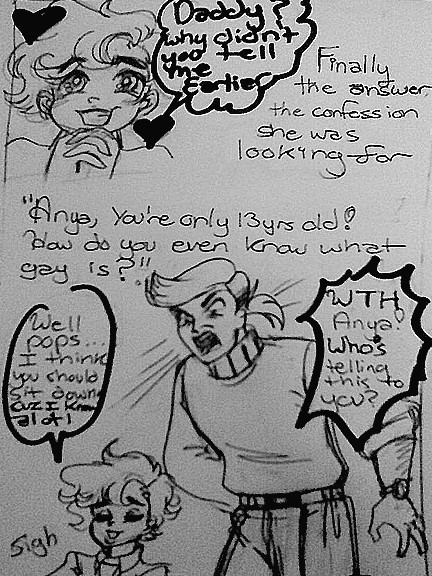 Daddy?
why didn't
you tell
me
Earlier
Finally
the answer,
the confession
she was
looking-for
"Anya, You're only 13yrs old!
How do you even know what
gay is?"
WTH
Anya!
Who's
telling
this to
you?
Well
pops...
I think
you should
sit down
cuz I know
alot!
Sigh